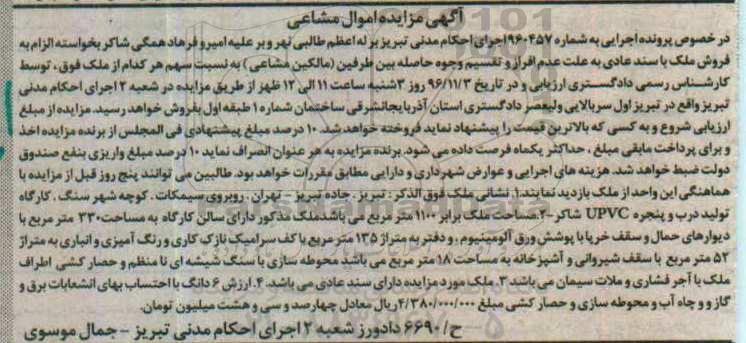 آگهی مزایده اموال مشاعی
در خصوص پرونده اجرایی به شماره ۹۶۰۴۵۷ اجرای احکام مدنی تبریز بر له اعظم طالبی نهر و بر علیه امیر و فرهاد همگی شاکر بخواسته الزام به
فروش ملک با سند عادی به علت عدم افراز و تقسیم وجوه حاصله بین طرفین (مالکین مشاعی) به نسبت سهم هر کدام از ملک فوق، توسط
کارشناس رسمی دادگستری ارزیابی و در تاریخ ۹۶/۱۱/۳ روز ۳شنبه ساعت ۱۱ الی ۱۲ ظهر از طریق مزایده در شعبه ۲ اجرای احکام مدنی
تبریز واقع در تبریز اول سربالایی ولیعصر دادگستری استان آذربایجانشرقی ساختمان شماره ۱ طبقه اول بفروش خواهد رسید. مزایده از مبلغ
ارزیابی شروع و به کسی که بالاترین قیمت را پیشنهاد نماید فروخته خواهد شد. ۱۰ درصد مبلغ پیشنهادی فی المجلس از برنده مزایده اخذ
و برای پرداخت مابقی مبلغ، حداکثر یکماه فرصت داده می شود. برنده مزایده به هر عنوان انصراف نماید ۱۰ درصد مبلغ واریزی بنفع صندوق
دولت ضبط خواهد شد. هزینه های اجرایی و عوارض شهرداری و دارایی مطابق مقررات خواهد بود. طالبین می توانند پنج روز قبل از مزایده با
هماهنگی این واحد از ملک بازدید نمایند.۱. نشانی ملک فوق الذکر: تبریز، جاده تبریز - تهران، روبروی سیمکات، کوچه شهر سنگ، کارگاه
تولید درب و پنجره UPVC شاکر-۲.مساحت ملک برابر ۱۱۰۰ متر مربع می باشدملک مذکور دارای سالن کارگاه به مساحت ۳۳۰ متر مربع با
دیوارهای حمال و سقف خرپا با پوشش ورق آلومینیوم، و دفتر به متراژ ۱۳۵ متر مربع با کف سرامیک نازک کاری و رنگ آمیزی و انباری به متراژ
۵۲ متر مربع با سقف شیروانی و آشپزخانه به مساحت ۱۸ متر مربع می باشد محوطه سازی با سنگ شیشه ای نا منظم و حصار کشی اطراف
ملک با آجر فشاری و ملات سیمان می باشد ۳. ملک مورد مزایده دارای سند عادی می باشد. ۴. ارزش ۶ دانگ با احتساب بهای انشعابات برق و
گاز و و چاه آب و محوطه سازی و حصار کشی مبلغ ۴/۳۸۰/۰۰۰/۰۰۰ ریال معادل چهارصد و سی و هشت میلیون تومان.
ح/۶۶۹۰ دادورز شعبه ۲ اجرای احکام مدنی تبریز - جمال موسوی